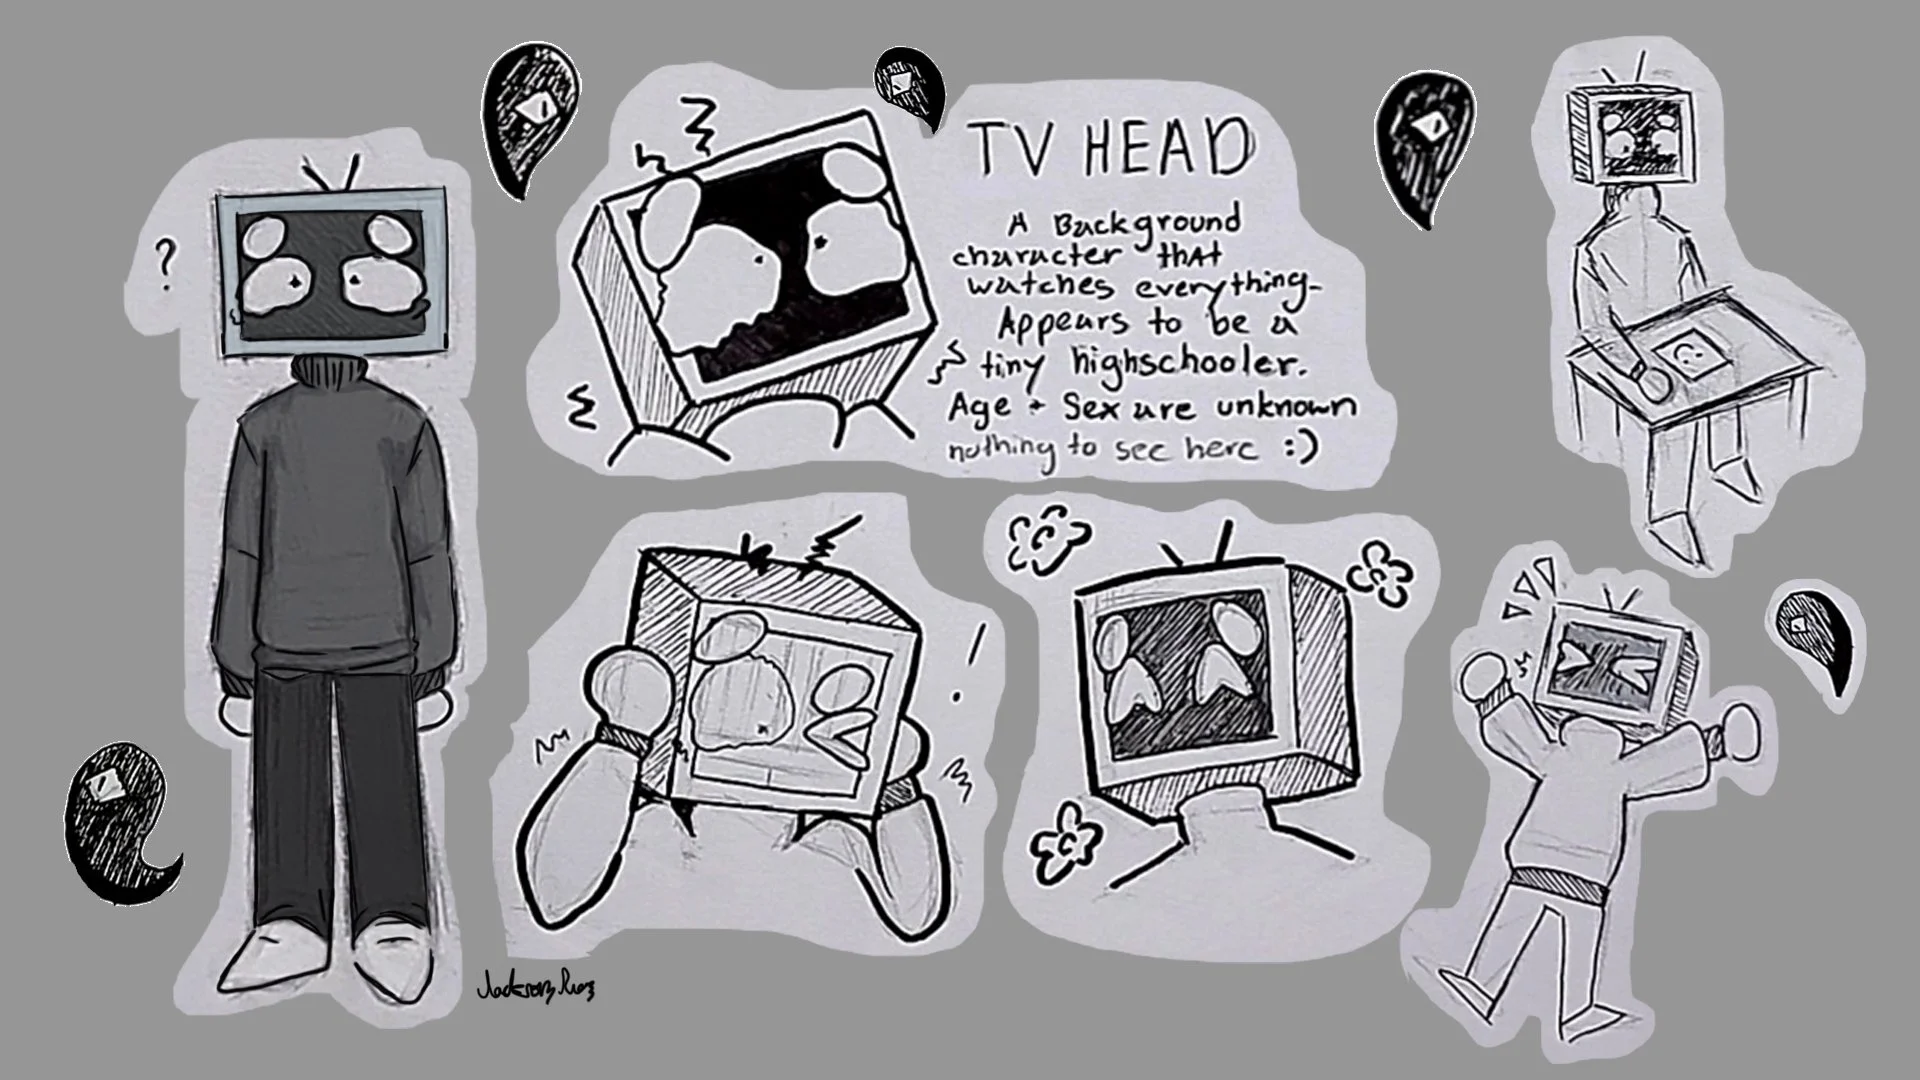 TV HEAD
A Background
character that
watches everything-
Appears to be a
tiny highschooler.
Age + Sex are unknown
nothing to see here :)
?
!
Jackson